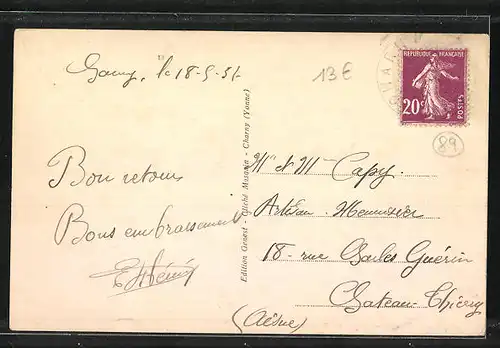 le 18-5-3
13€
RÉPUBLIQUE FRANÇAISE
20c
POSTES
89
Bon retour
Bons embrassements
Edition Genest - Cliché Musquin - Charny (Yonne)
Mr et Mme Capy
Artisan Menuisier
18 - rue Charles Guérin
Chateau-Thierry
(Aisne)